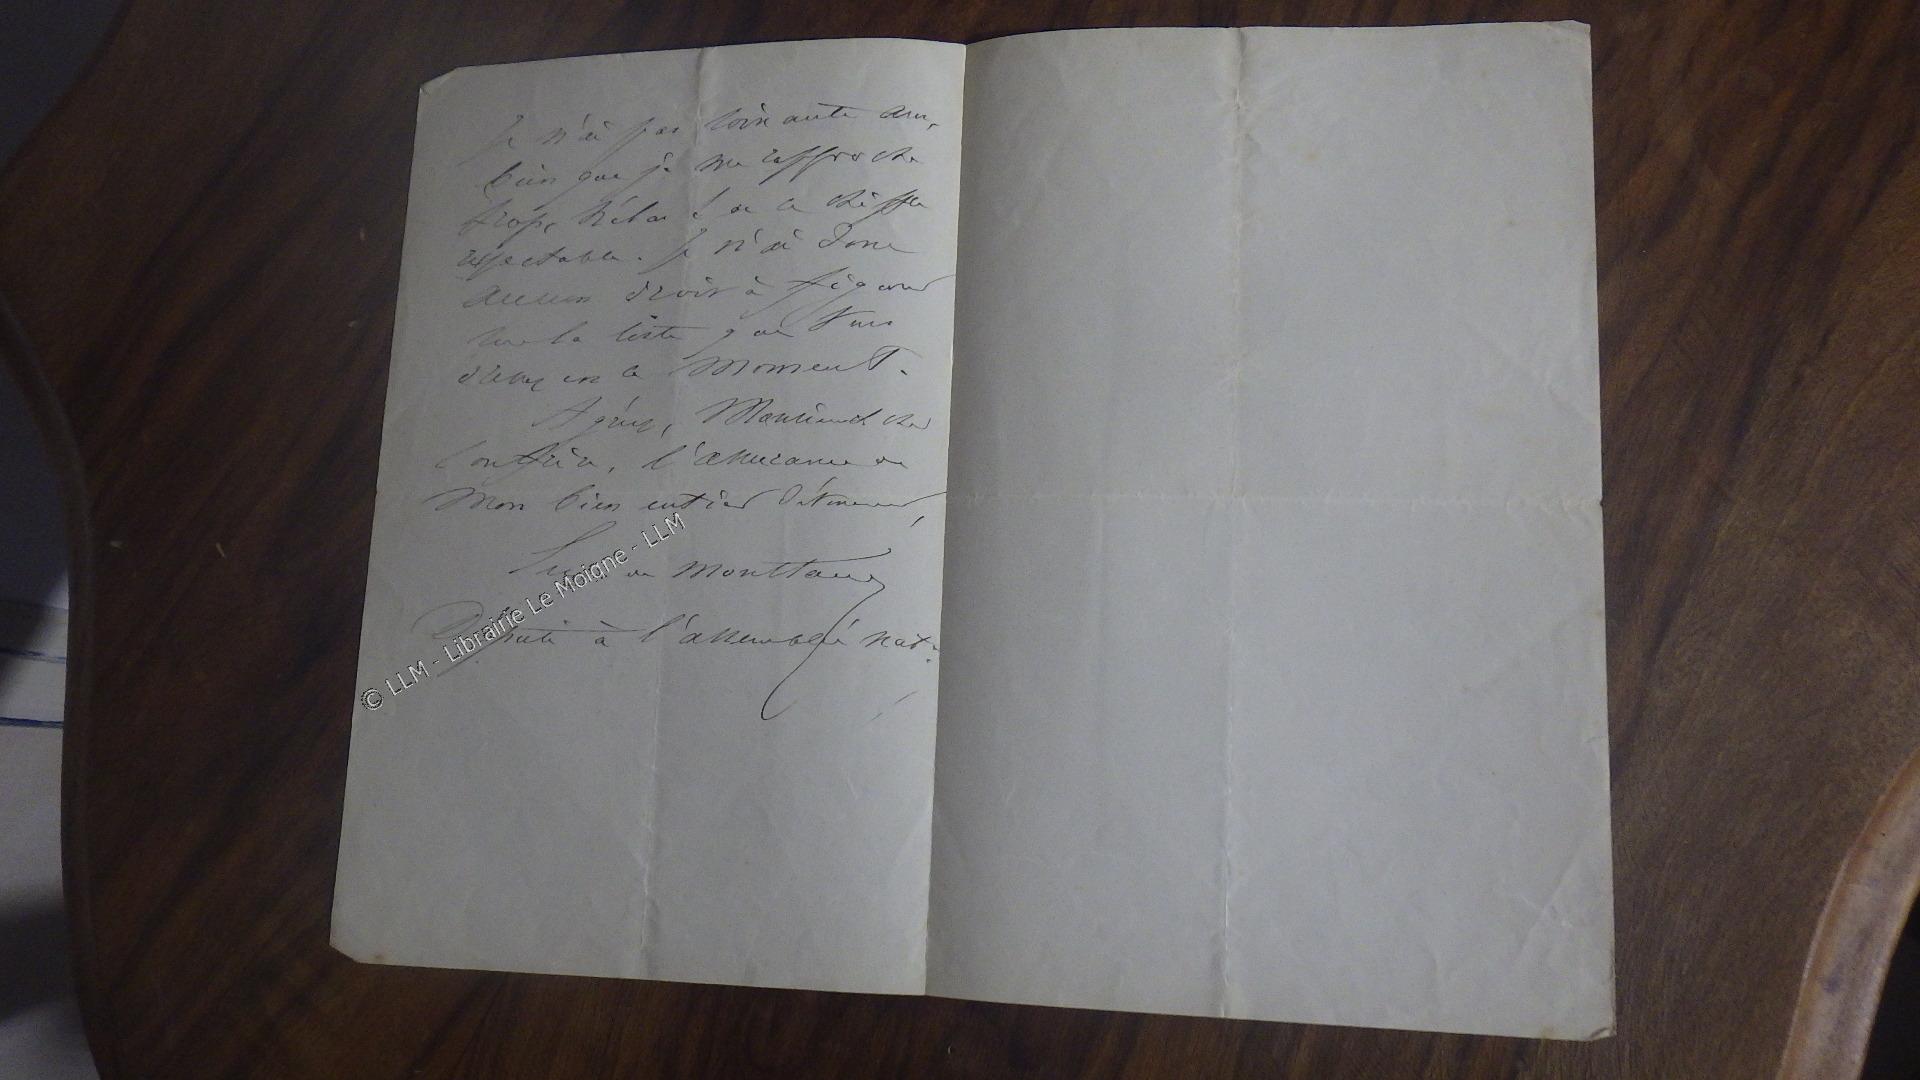 Je n'ai pas soixante ans,
bien que je me rapproche
trop, hélas ! de ce chiffre
respectable. Je n'ai donc
aucun droit à figurer
sur la liste que vous
dressez en ce moment.
Agréez, Monsieur et cher
Confrère, l'assurance de
mon bien entier dévouement,
de Montlaur
Député à l'assemblée nat.le
© LLM - Librairie Le Moigne - LLM